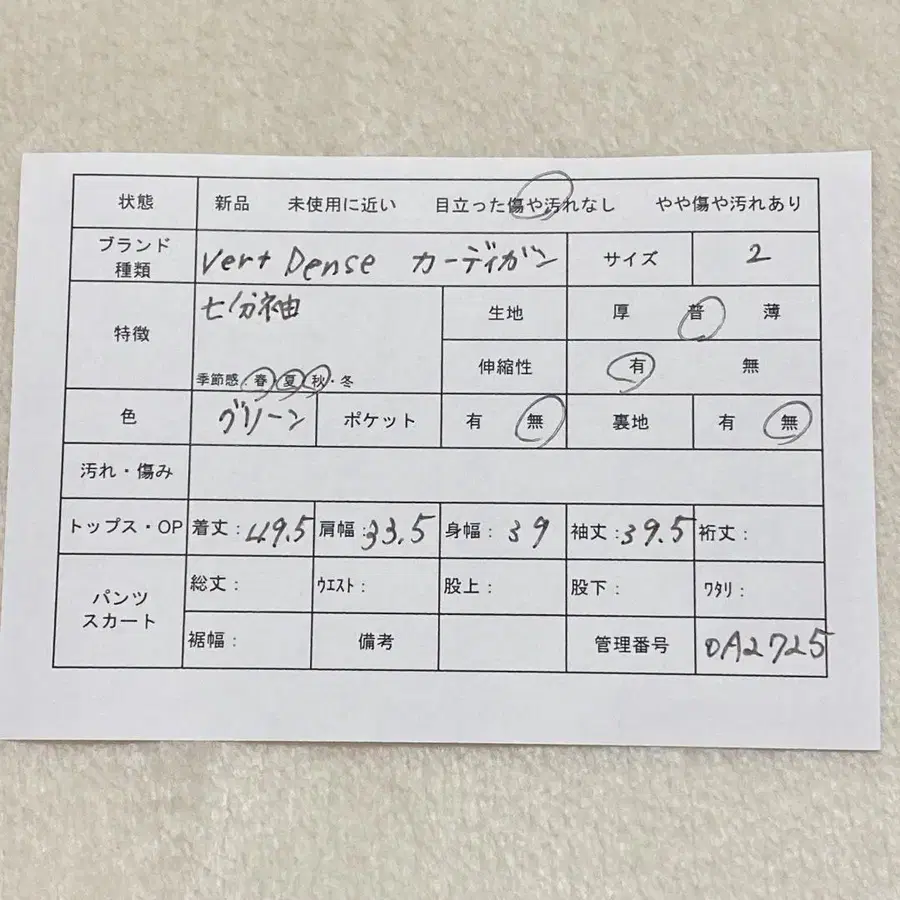 状態 新品 未使用に近い 目立った傷や汚れなし やや傷や汚れあり
ブランド
種類 Vert Dense カーディガン サイズ 2
特徴 七分袖 生地 厚 普 薄
季節感:春・夏・秋・冬 伸縮性 有 無
色 グリーン ポケット 有 無 裏地 有 無
汚れ・傷み
トップス・OP 着丈:49.5 肩幅:33.5 身幅:39 袖丈:39.5 裄丈:
パンツ
スカート 総丈: ウエスト: 股上: 股下: ワタリ:
裾幅: 備考 管理番号 OA2725